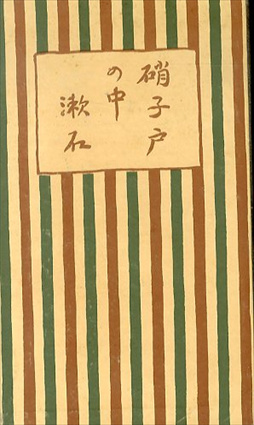 硝子戸
の中
漱石